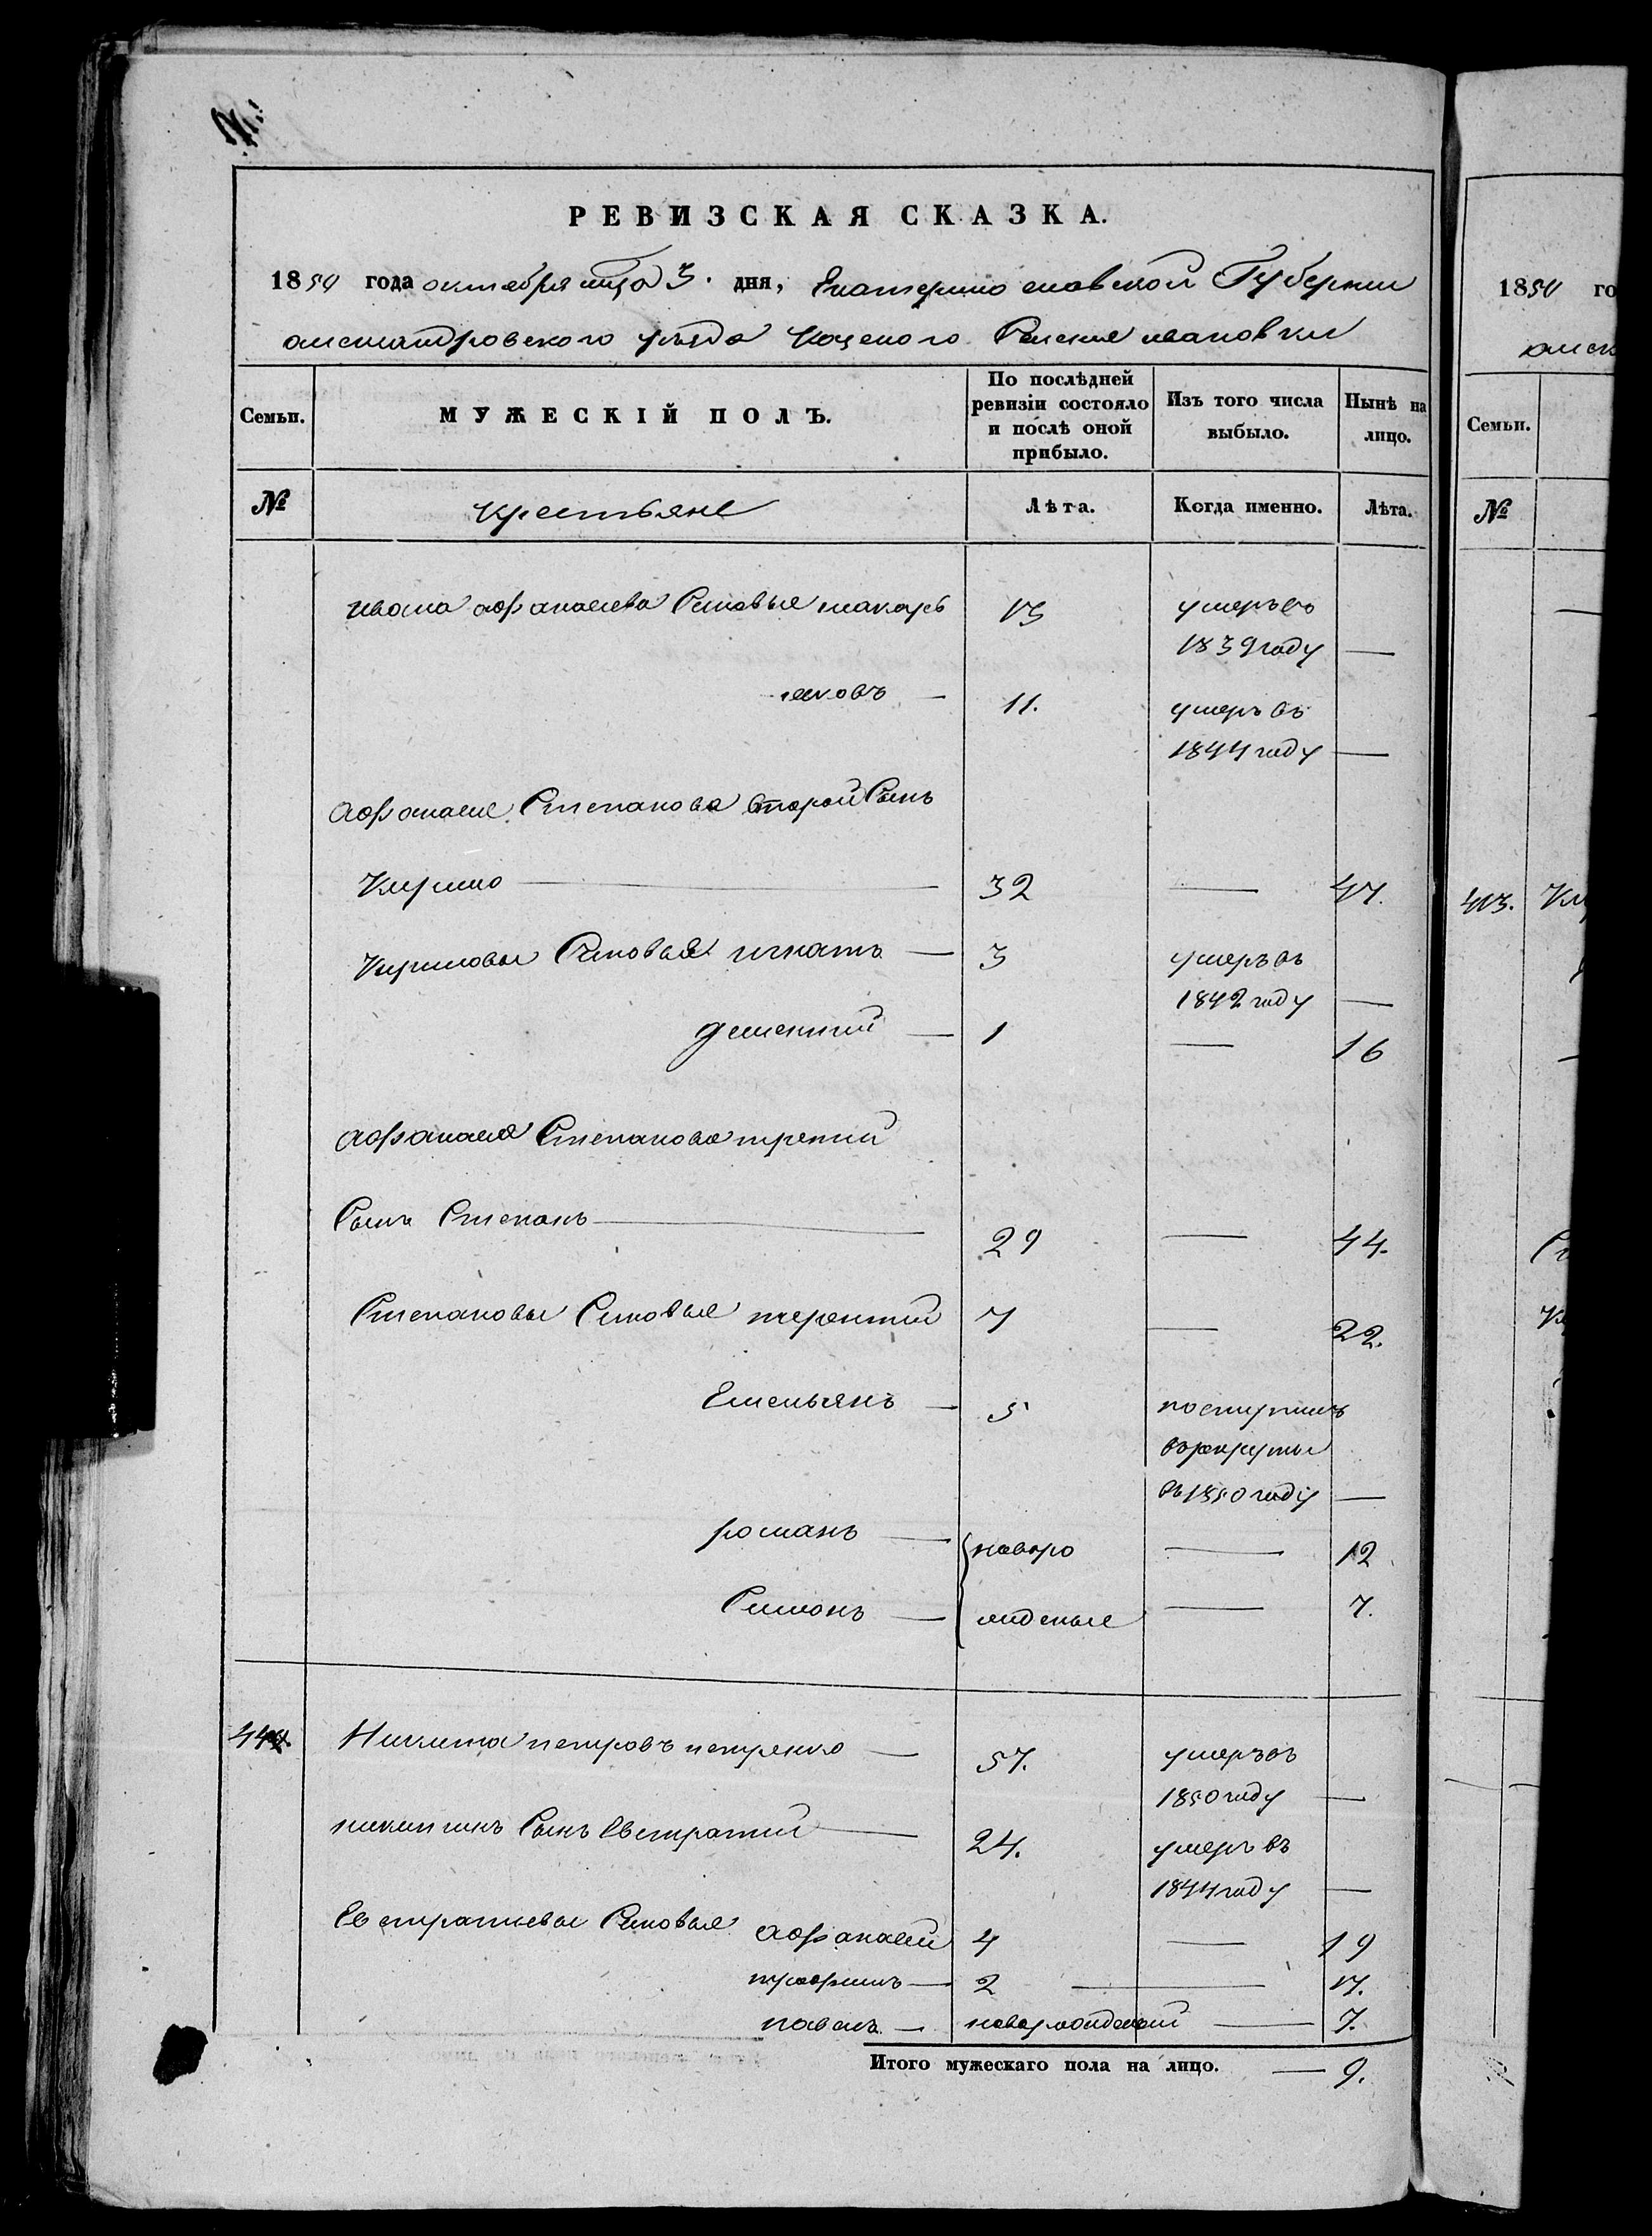 РЕВИЗСКАЯ СКАЗКА.
1850 года октября мца 3. дня, Екатеринославской Губернии
александровского уезда Селения ивановки
Семьи.
МУЖЕСКІЙ ПОЛЪ.
По послѣдней ревизіи состояло и послѣ оной прибыло.
Изъ того числа выбыло.
Нынѣ на лицо.
№ крестьяне Лѣта. Когда именно. Лѣта.
ивана афанасиева Сыновья макаръ 13 умеръ въ
1839 году —
яковъ — 11. умеръ въ
1844 году —
афанасия Степанова второй Сынъ
Кирило — 32 — 47.
Кириловы Сыновья игнатъ — 3 умеръ въ
1842 году —
дементий — 1 — 16
афанасия Степанова третий
Сынъ Степанъ — 29 — 44.
Степановы Сыновья терентий 7 — 22.
Емельянъ — 5 поступилъ
въ рекруты
въ 1850 году —
романъ — новоро — 12
Симонъ — жденые — 7.
44 Никита петровъ петренко — 57. умеръ въ
1850 году —
никитинъ Сынъ Евстратий — 24. умеръ въ
1844 году —
Евстратиевы Сыновья афанасий 4 — 19
трофимъ — 2 — 17.
павелъ — новорожденый — 7.
Итого мужескаго пола на лицо. — 9.
1850 го
алек
Семьи.
№
413. Ки